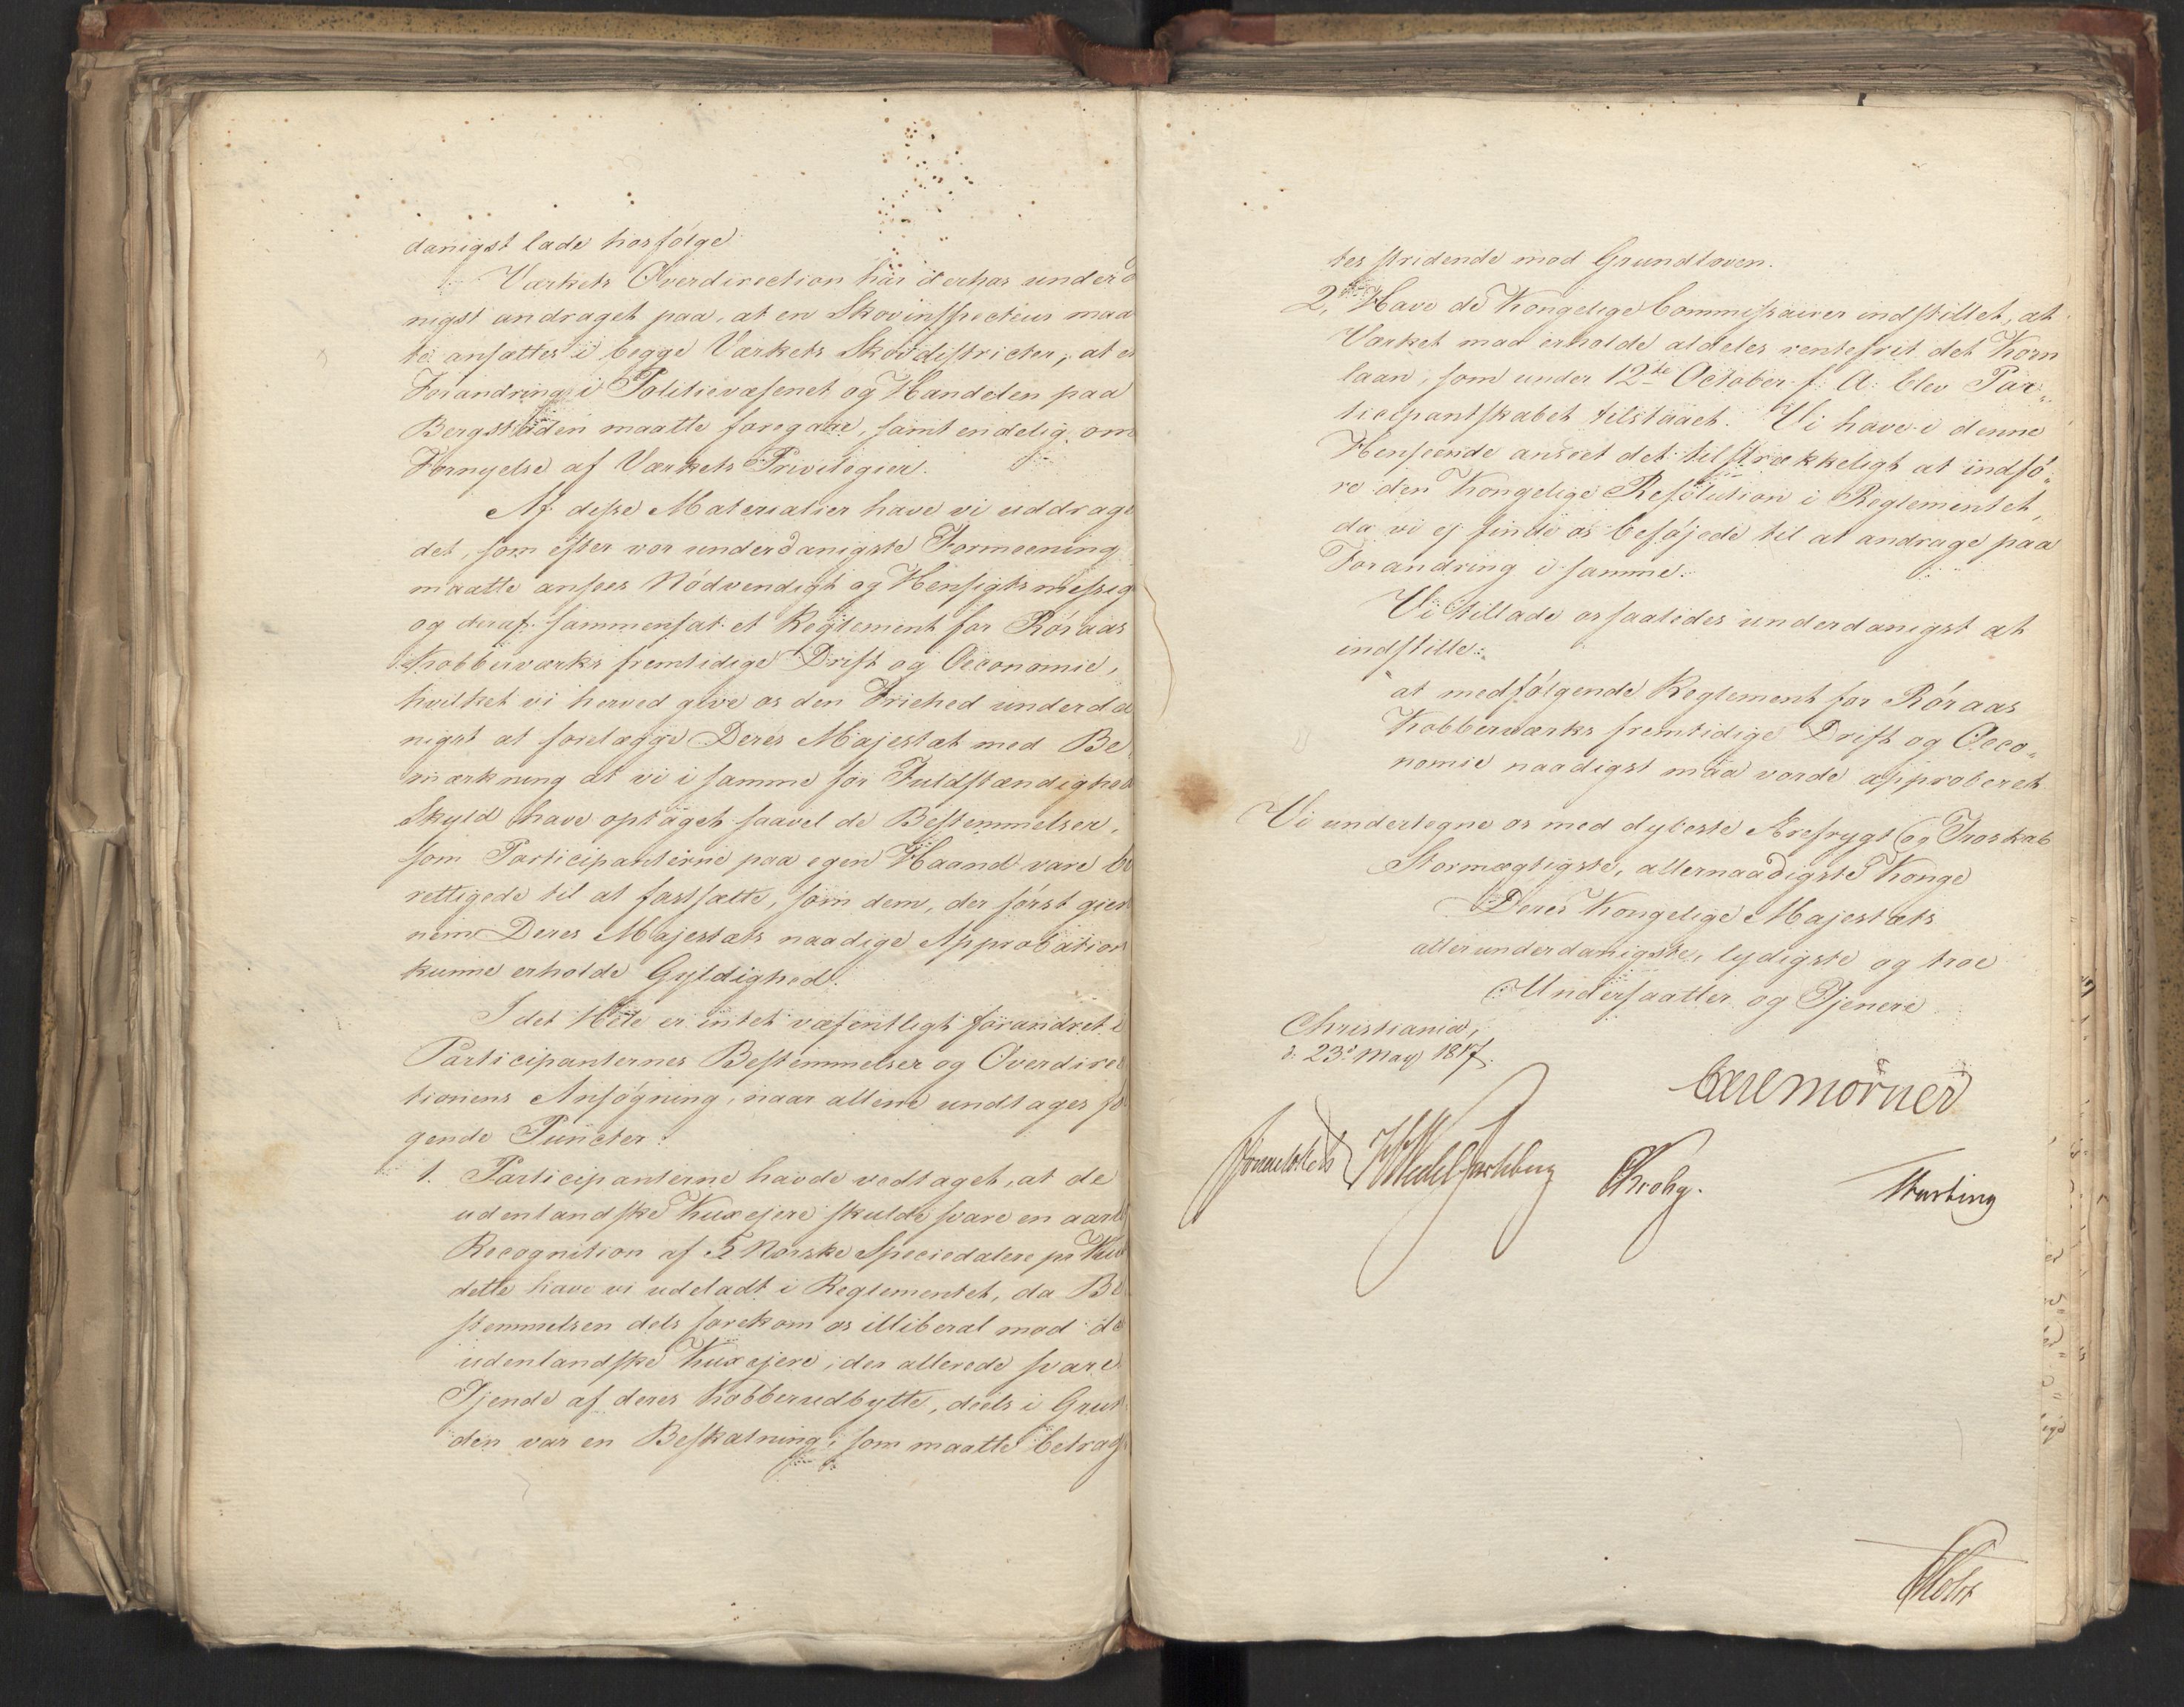 danigst lade hosfølge.
Værkets Overdirection har derhos underda
nigst andraget paa, at en Skovinspecteur maat
te ansættes i begge Værkets Skovdistricter, at en
Forandring i Politievæsenet og Handelen paa
Bergstaden maatte foregaae, samt endelig om
Fornyelse af Værkets Privilegier.
Af disse Materialier have vi uddraget
det, som efter vor underdanigste Formeening
maatte ansees Nødvendigt og Hensigtsmessigt
og deraf sammensat et Reglement for Røraas
Kobberværks fremtidige Drift og Oeconomie,
hvilket vi herved give os den Friehed underda
nigst at forelægge Deres Majestæt med Be
mærkning at vi i samme for Fuldstændigheds
Skyld have optaget saavel de Bestemmelser,
som Participanterne paa egen Haand vare be
rettigede til at fastsætte, som dem, der først gien
nem Deres Majestæts naadige Approbation
kunne erholde Gyldighed.
I det Hele er intet væsentligt forandret i
Participanternes Bestemmelser og Overdirec
tionens Ansøgning, naar allene undtages føl
gende Puncter:
1. Participanterne havde vedtaget, at de
udenlandske Kuxejere skulde svare en aarlig
Recognition af 5 Norske Speciedalere pr Kux
dette have vi udeladt i Reglementet, da Be
stemmelsen dels forekom os illiberal mod de
udenlandske Kuxejere, der allerede svare
Tjende af deres Kobberudbytte, deels i Grun
den var en Beskatning, som maatte betrag
tes stridende mod Grundloven.
2, Have de Kongelige Commissairer indstillet, at
Værket maa erholde aldeles rentefrit det Korn
laan, som under 12te October f. A. blev Par„
ticipantskabet tilstaaet. Vi have i denne
Henseende anseet det tilstrækkeligt at indfø„
re den Kongelige Resolution i Reglementet,
da vi ej finde os beføjede til at andrage paa
Forandring i samme.
Vi tillade os saaledes underdanigst at
indstille:
at medfølgende Reglement for Røraas
Kobberværks fremtidige Drift og Oeco„
nomie naadigst maa vorde approberet
Vi undertegne os med dybeste Ærefrygt og Troskab
Stormægtigste, allernaadigste Konge
Deres Kongelige Majestæts
allerunderdanigste, lydigste og troe
Undersaatter og Tjenere
Christiania,
d: 23d May 1817.
Carl Mörner
Sommerhielm HWedel Jarlsberg CKrohg. Hartsing
Holst